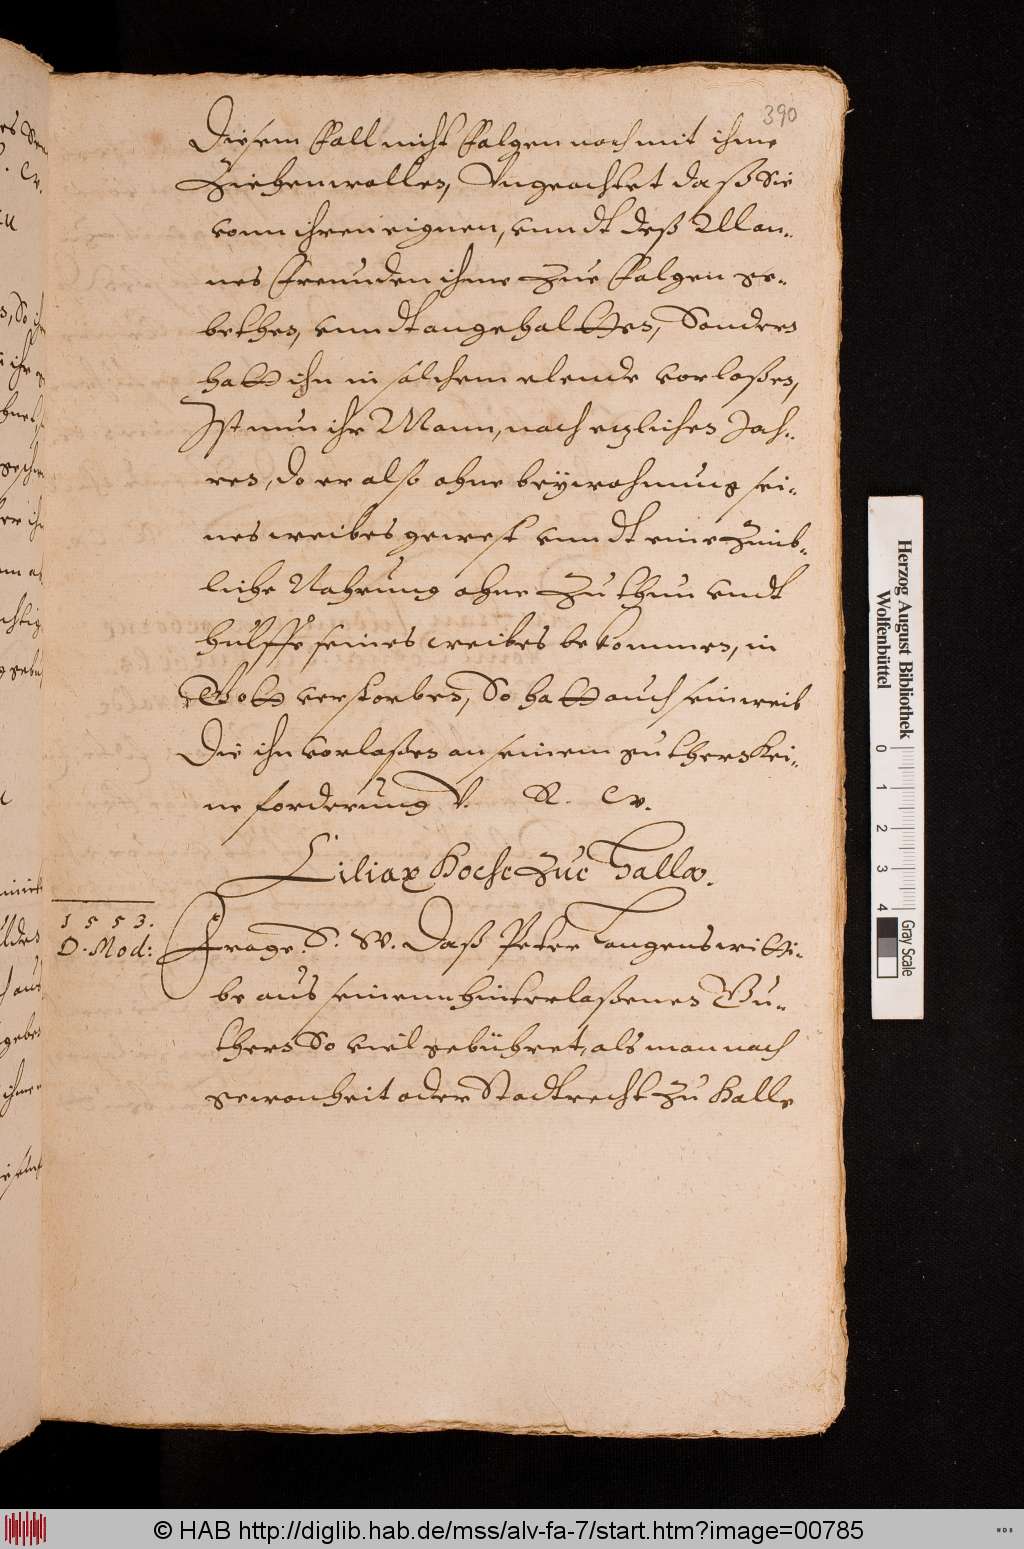 390
Diesem Fall nicht Folgen noch mit ihme
Ziehen wolles, Ungeachtet daß Sie
vonn ihren eignen, vnndt deß Man-
nes Freunden ihme Zue Folgen ge-
bethes, vnndt angehaltes, Sonders
hatt ihn in solchem elende vorlaßes,
Ist nun ihr Mann, nach etzliches Jah-
res, do er also ohne beÿwohnung sei-
nes weibes gewest vnndt eine Zimb-
liche Nahrung ohne Zuthun vndt
hülffe seines weibes bekommes, in
Gott verstorbes, So hatt auch sein weib
Die ihn vorlaßes an seinem guthers kei-
ne forderung V. R. W.
Ciliax Hoese Zue Halle.
1553.
D. Mod:
Frage. S. W. Daß Peter Langens witti-
be aus seinenn hinterlaßenes Gu-
thers So viel gebühret, als man nach
gewonheit oder Stadtrecht Zu Halle
Herzog August Bibliothek
Wolfenbüttel
0 1 2 3 4
Gray Scale
© HAB http://diglib.hab.de/mss/alv-fa-7/start.htm?image=00785